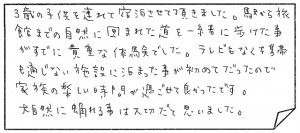 3歳の子供を連れて宿泊させて頂きました。駅から旅
館までの自然に囲まれた道を一緒に歩けた事
がすでに貴重な体験でした。テレビもなく携帯
も通じない施設に泊まった事が初めてだったので
家族の楽しい時間が過ごせて良かったです。
大自然に触れる事は大切だと思いました。